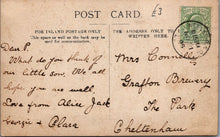 £3
POST CARD.
FOR INLAND POSTAGE ONLY
THIS SPACE AS WELL AS THE BACK
MAY BE USED FOR COMMUNICATION.
THE ADDRESS ONLY TO
BE WRITTEN HERE.
Dear
What do you think of
our little son. We all
hope you are well,
Love from Alice Jack
Georgie &
Mrs Connelly
Grafton Brewery
The Park
Cheltenham